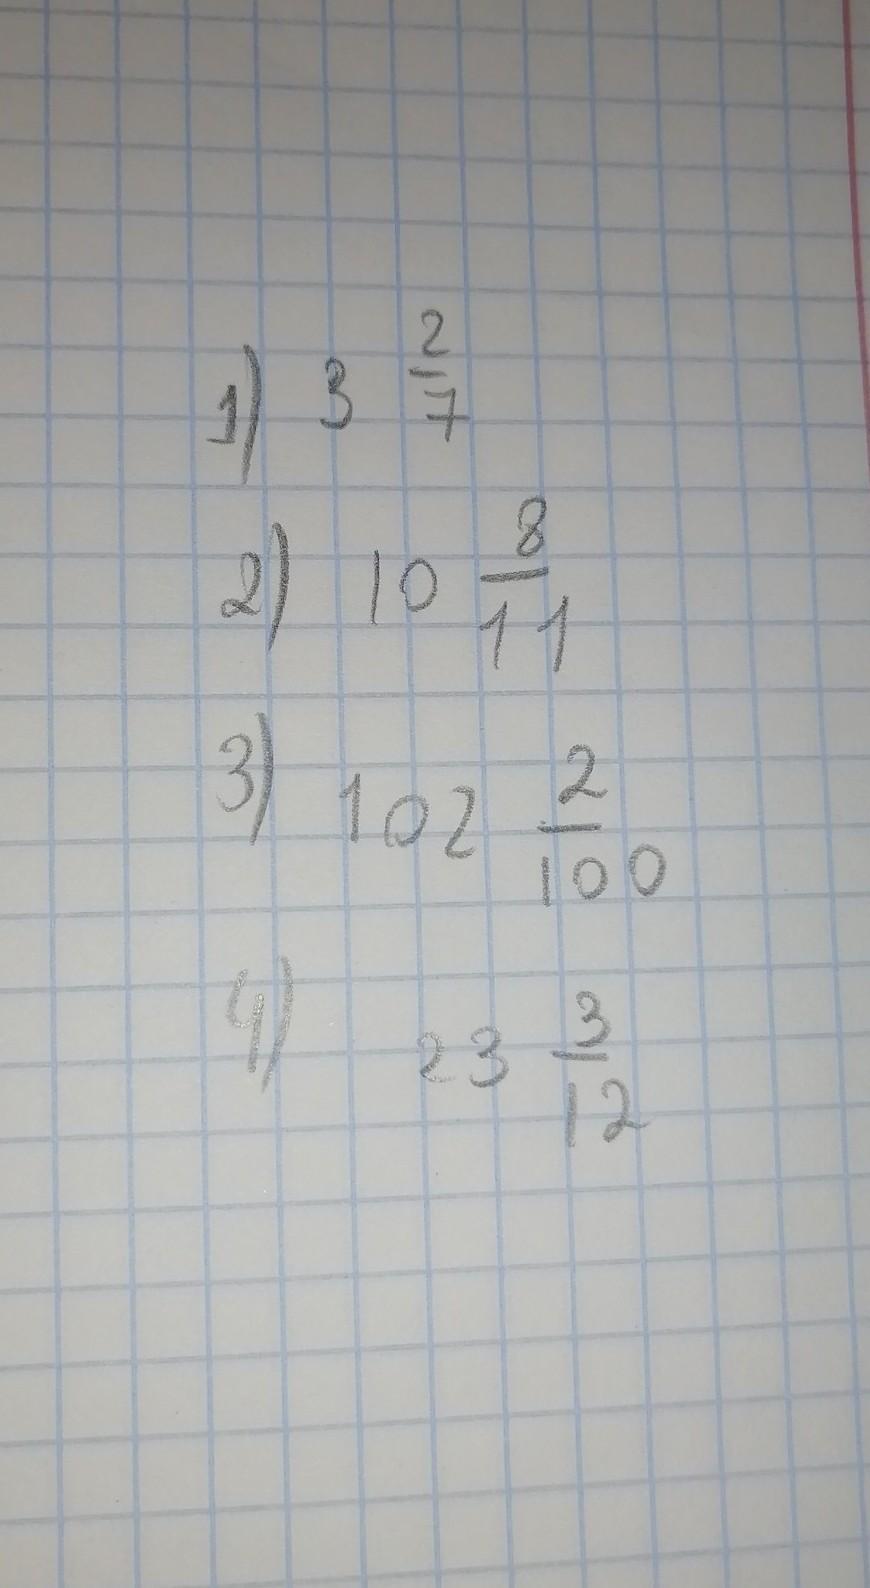 1) 3 2/7
2) 10 8/11
3) 102 2/100
4) 23 3/12